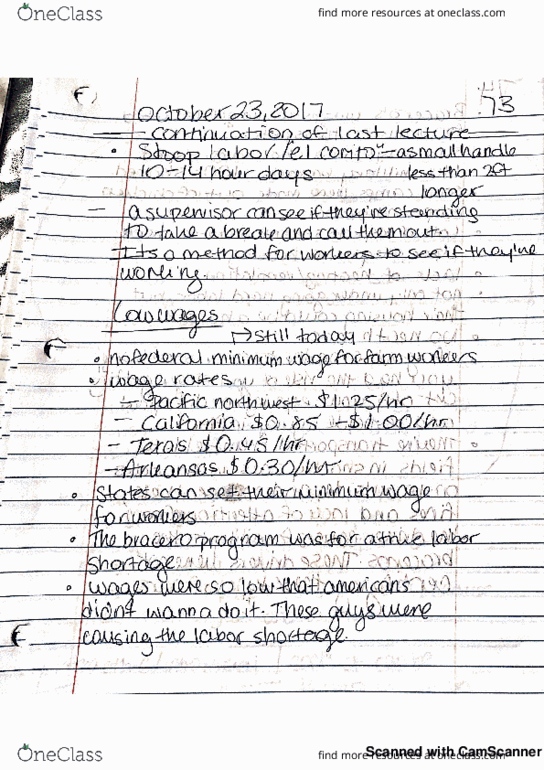 OneClass
find more resources at oneclass.com
73
October 23, 2017
— continuation of last lecture
• Stoop labor/el corito - a small handle
10-14 hour days less than 2ft
longer
— a supervisor can see if they're standing
to take a break and call them out
— Its a method for workers to see if they're
working
Low wages
↳ still today
• no federal minimum wage for farm workers
• wage rates
— Pacific northwest $1.25/hr
— California $0.85 - $1.00/hr
— Texas $0.45/hr
— Arkansas $0.30/hr
• States can set their minimum wage
for workers
• The bracero program was for a true labor
shortage
• wages were so low that americans
didn't wanna do it. These guys were
causing the labor shortage.
OneClass
find more resources at oneclass.com
Scanned with CamScanner